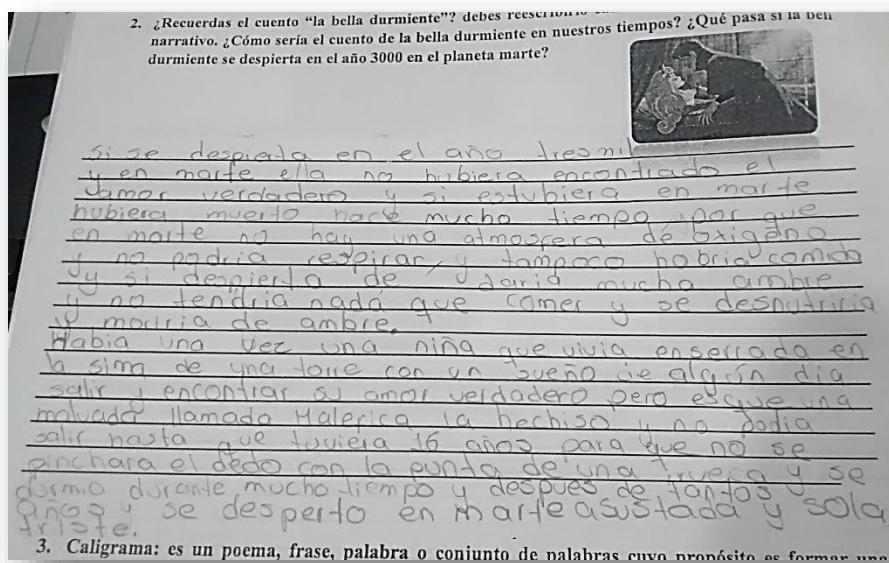 2. ¿Recuerdas el cuento “la bella durmiente”? debes
narrativo. ¿Cómo sería el cuento de la bella durmiente en nuestros tiempos? ¿Qué pasa si la
durmiente se despierta en el año 3000 en el planeta marte?
si se despierta en el año tresmil
y en marte ella no hubiera encontrado el
amor verdadero y si estubiera en marte
hubiera muerto hace mucho tiempo por que
en marte no hay una atmosfera de oxigeno
y no podria respirar, y tampoco habria comida
y si despierta de daria mucha ambre
y no tendria nada que comer y se desnutriria
y moriria de ambre.
Habia una vez una niña que vivia enserrada en
la sima de una torre con un sueño de algún dia
salir y encontrar su amor verdadero pero es que una
malvada llamada Malefica la hechiso y no podia
salir hasta que tuviera 16 años para que no se
pinchara el dedo con la punta de una rrueca y se
durmio durante mucho tiempo y despues de tantos
años y se desperto en marte asustada y sola
triste.
3. Caligrama: es un poema, frase, palabra o conjunto de palabras cuyo propósito es formar una